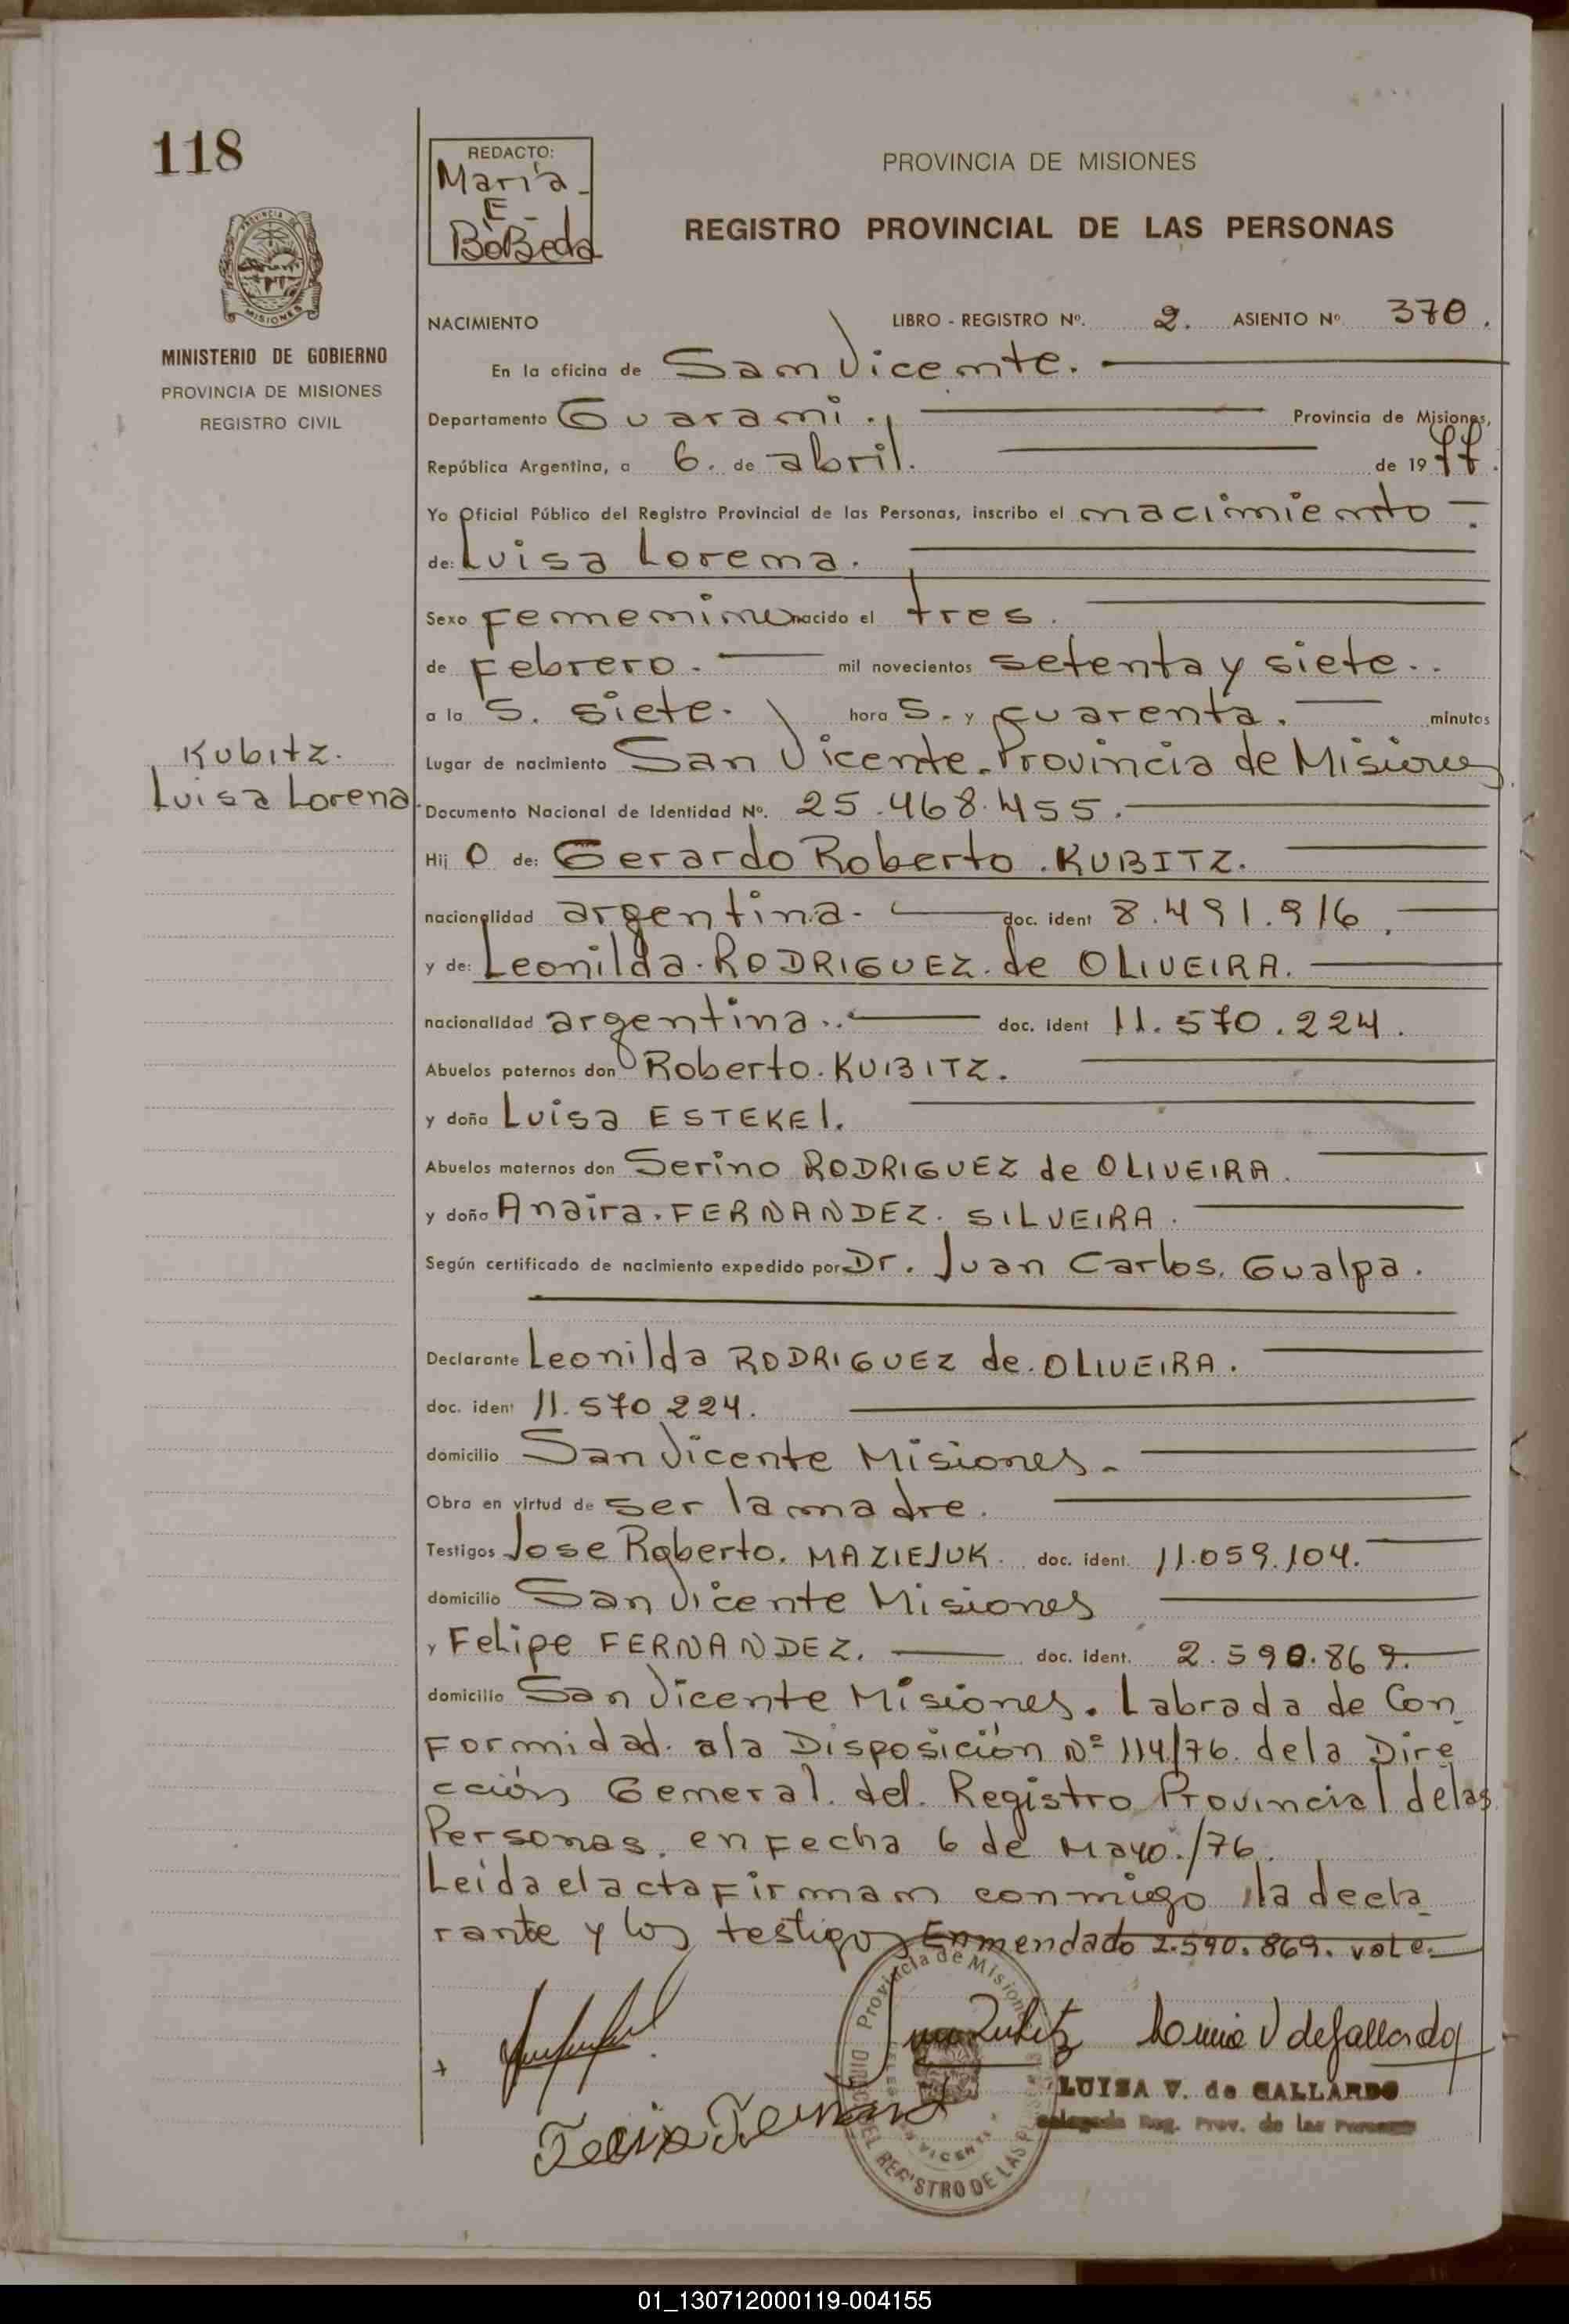 118
REDACTO:
Maria
E
BoBeda
PROVINCIA DE MISIONES
REGISTRO PROVINCIAL DE LAS PERSONAS
MINISTERIO DE GOBIERNO
PROVINCIA DE MISIONES
REGISTRO CIVIL
NACIMIENTO LIBRO - REGISTRO Nº. 2. ASIENTO Nº 370.
En la oficina de San Vicente.
Departamento Guarani. Provincia de Misiones,
República Argentina, a 6. de abril. de 1977.
Yo Oficial Público del Registro Provincial de las Personas, inscribo el nacimiento
de: Luisa Lorena.
Sexo Femenino nacido el tres.
de Febrero. mil novecientos setenta y siete..
a la S. siete. hora S. y cuarenta. minutos
Kubitz.
Luisa Lorena
Lugar de nacimiento San Vicente. Provincia de Misiones
Documento Nacional de Identidad Nº. 25.468.455.
Hij O de: Gerardo Roberto. KUBITZ.
nacionalidad argentina. doc. ident 8.491.916.
y de: Leonilda. RODRIGUEZ. de OLIVEIRA.
nacionalidad argentina.. doc. ident 11.570.224.
Abuelos paternos don Roberto. KUBITZ.
y doña Luisa ESTEKEl.
Abuelos maternos don Serino RODRIGUEZ de OLIVEIRA.
y doña Anaira. FERNANDEZ. SILVEIRA.
Según certificado de nacimiento expedido por Dr. Juan Carlos. Gualpa.
Declarante Leonilda RODRIGUEZ de. OLIVEIRA.
doc. ident 11.570.224.
domicilio San Vicente Misiones.
Obra en virtud de ser la madre.
Testigos Jose Roberto. MAZIEJUK. doc. ident. 11.059.104.
domicilio San Vicente Misiones
y Felipe FERNANDEZ. doc. ident. 2.590.869.
domicilio San Vicente Misiones. Labrada de Con
Formidad. a la Disposición Nº 114/76. de la Dire
cción General. del. Registro Provincial de las
Personas. en Fecha 6 de Mayo./76.
Leida el acta Firman conmigo la decla
rante y los testigos Enmendado 2.590.869. vale.
Provincia de Misiones
REGISTRO DE LAS
LUISA V. de GALLARDO
Reg. Prov. de las Personas
01_130712000119-004155